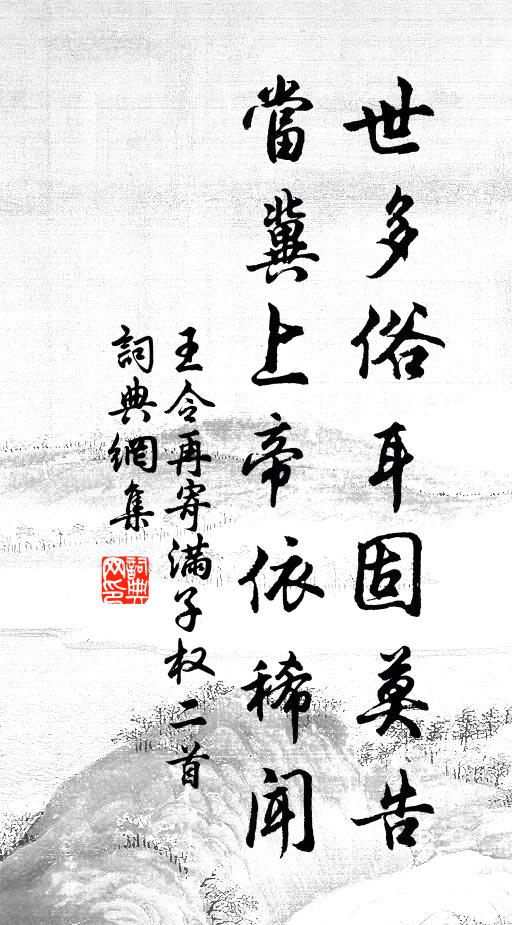 世多俗耳固莫告
當冀上帝依稀聞
王令再寄满子权二首
詞典網集
詞典网印